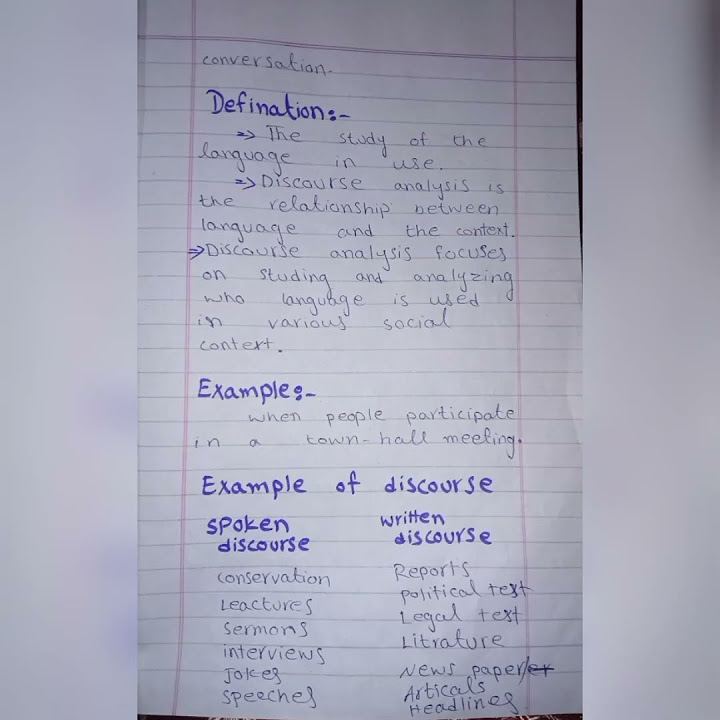 conversation.
Defination:-
=> The study of the
language in use.
=> Discourse analysis is
the relationship between
language and the context.
=> Discourse analysis focuses
on studing and analyzing
who language is used
in various social
context.
Example:-
when people participate
in a town-hall meeting.
Example of discourse
spoken discourse
written discourse
conservation
Leactures
sermons
interviews
Jokes
speeches
Reports
political text
Legal text
Litrature
News paper/er
Articals
Headlines